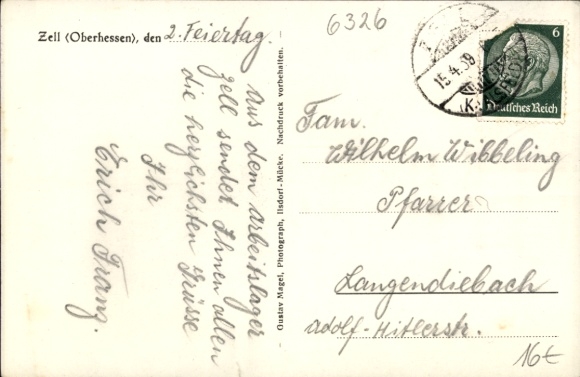 Zell (Oberhessen), den 2. Feiertag.
Aus dem Arbeitslager
Zell sendet Ihnen allen
die herzlichsten Grüsse
Ihr
Erich Franz.
Gustav Magel, Photograph, Ilsdorf-Mücke. Nachdruck vorbehalten.
6326
15.4.39
6
Deutsches Reich
Fam.
Wilhelm Wibbeling
Pfarrer
Langendiebach
Adolf-Hitlerstr.
16€